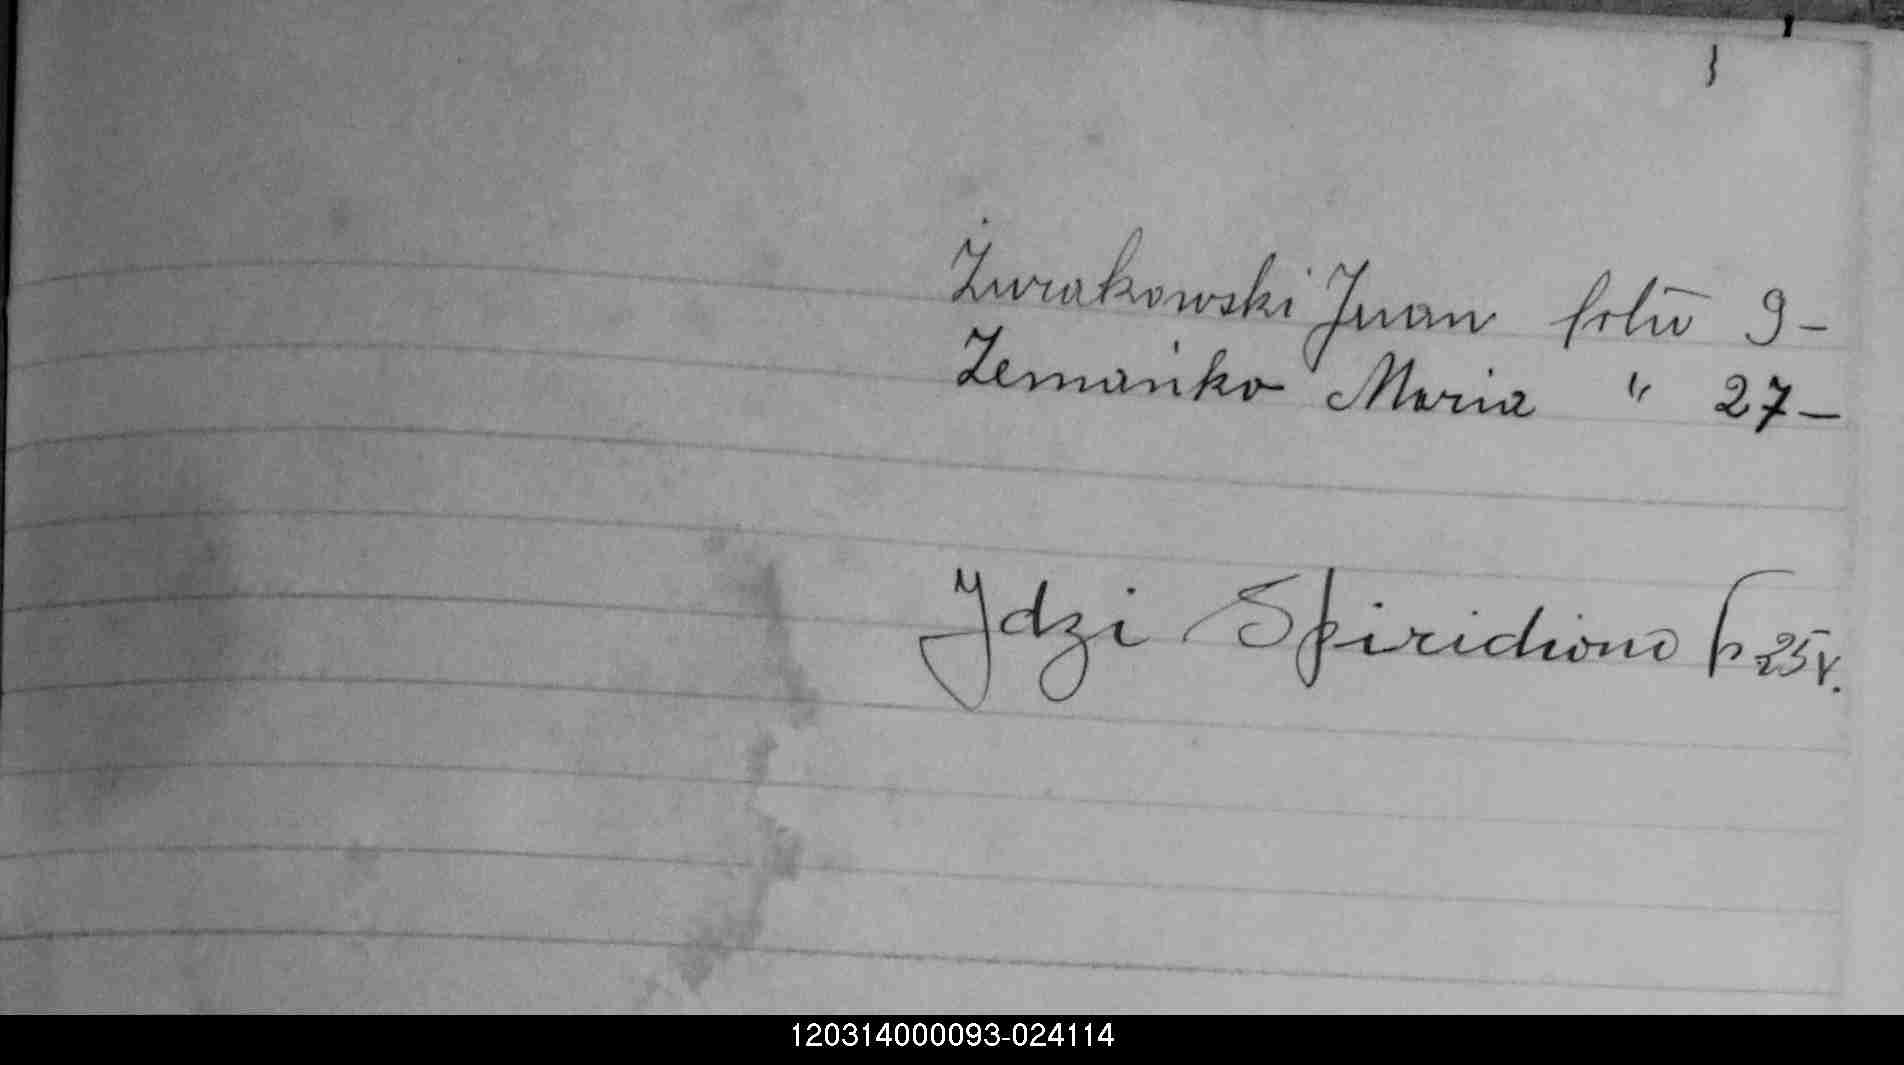 Żurakowski Juan foliū 9-
Zemańko Maria " 27-
Jdzi Spiridiono f 25 v.
120314000093-024114